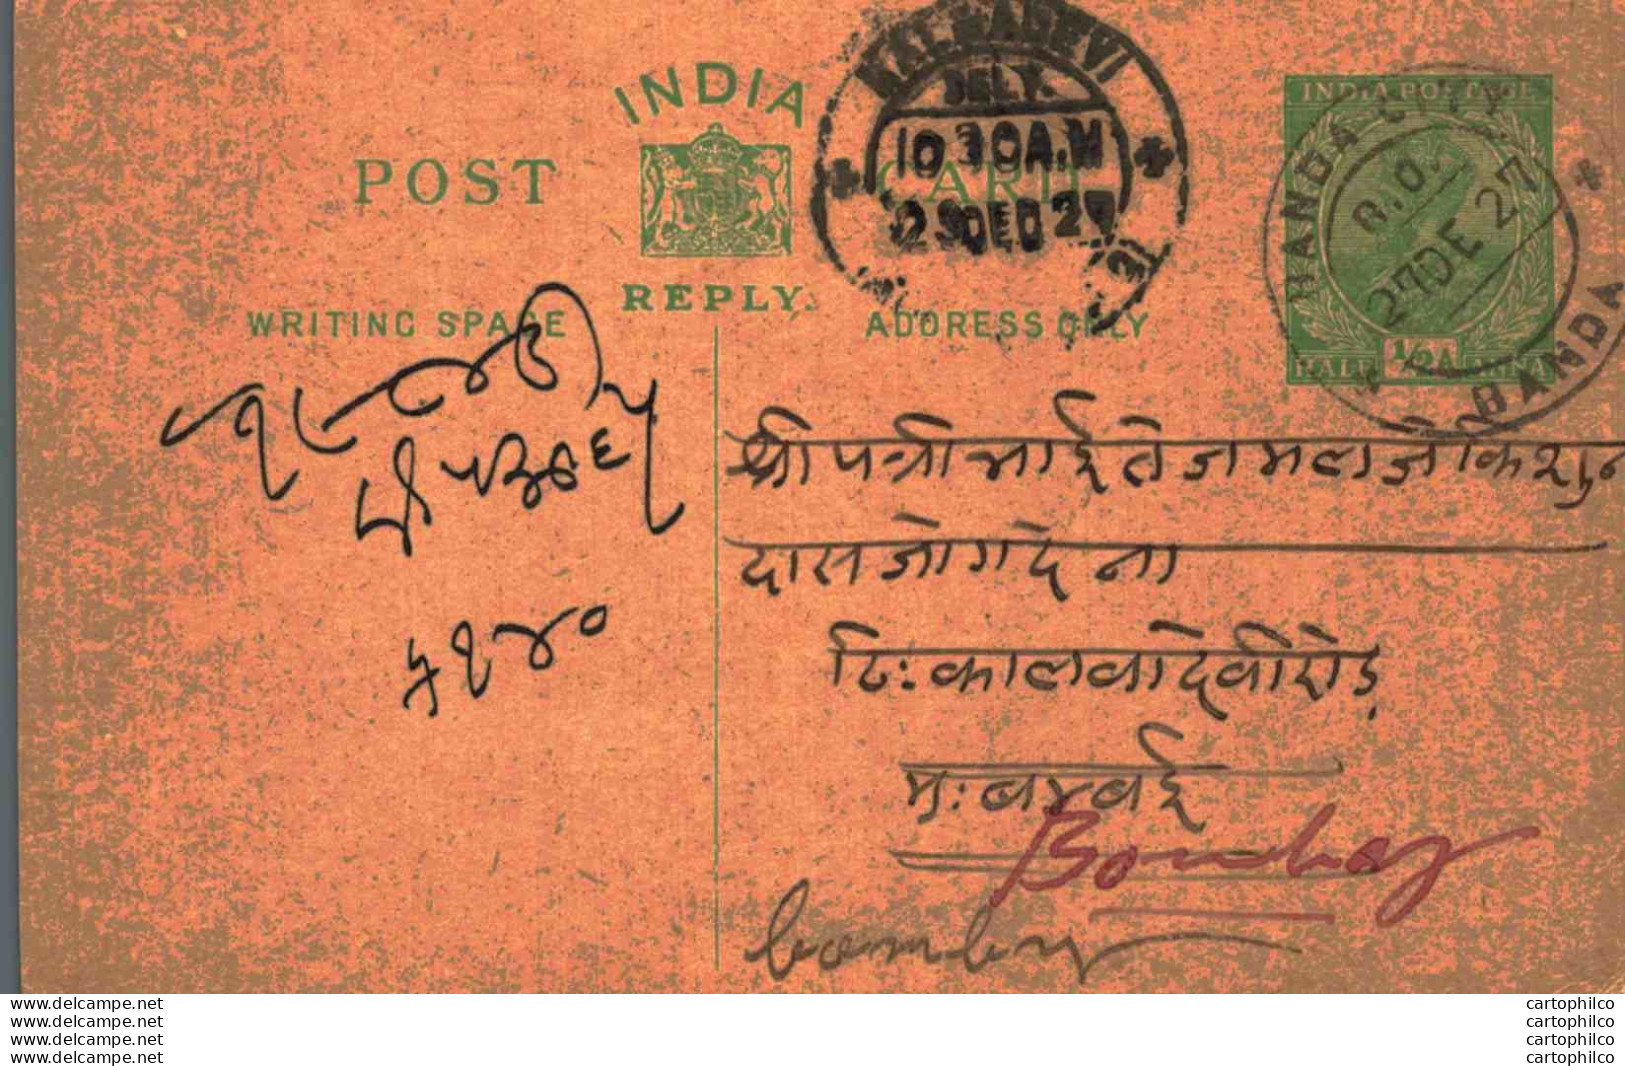 INDIA
POST CARD
REPLY.
WRITING SPACE
ADDRESS ONLY
KALBADEVI
DELY.
10 30 A.M
29 DEC 27
INDIA POSTAGE
HALF ½ A ANNA
BANDA CITY
R.O.
27 DE 27
BANDA
५१४०
श्री पत्री भाई तेजमल जी केशुन
दास जोग देना
ठि: कालबादेवी रोड़
मु: बम्बई
Bombay
bombay
www.delcampe.net
www.delcampe.net
www.delcampe.net
www.delcampe.net
cartophilco
cartophilco
cartophilco
cartophilco